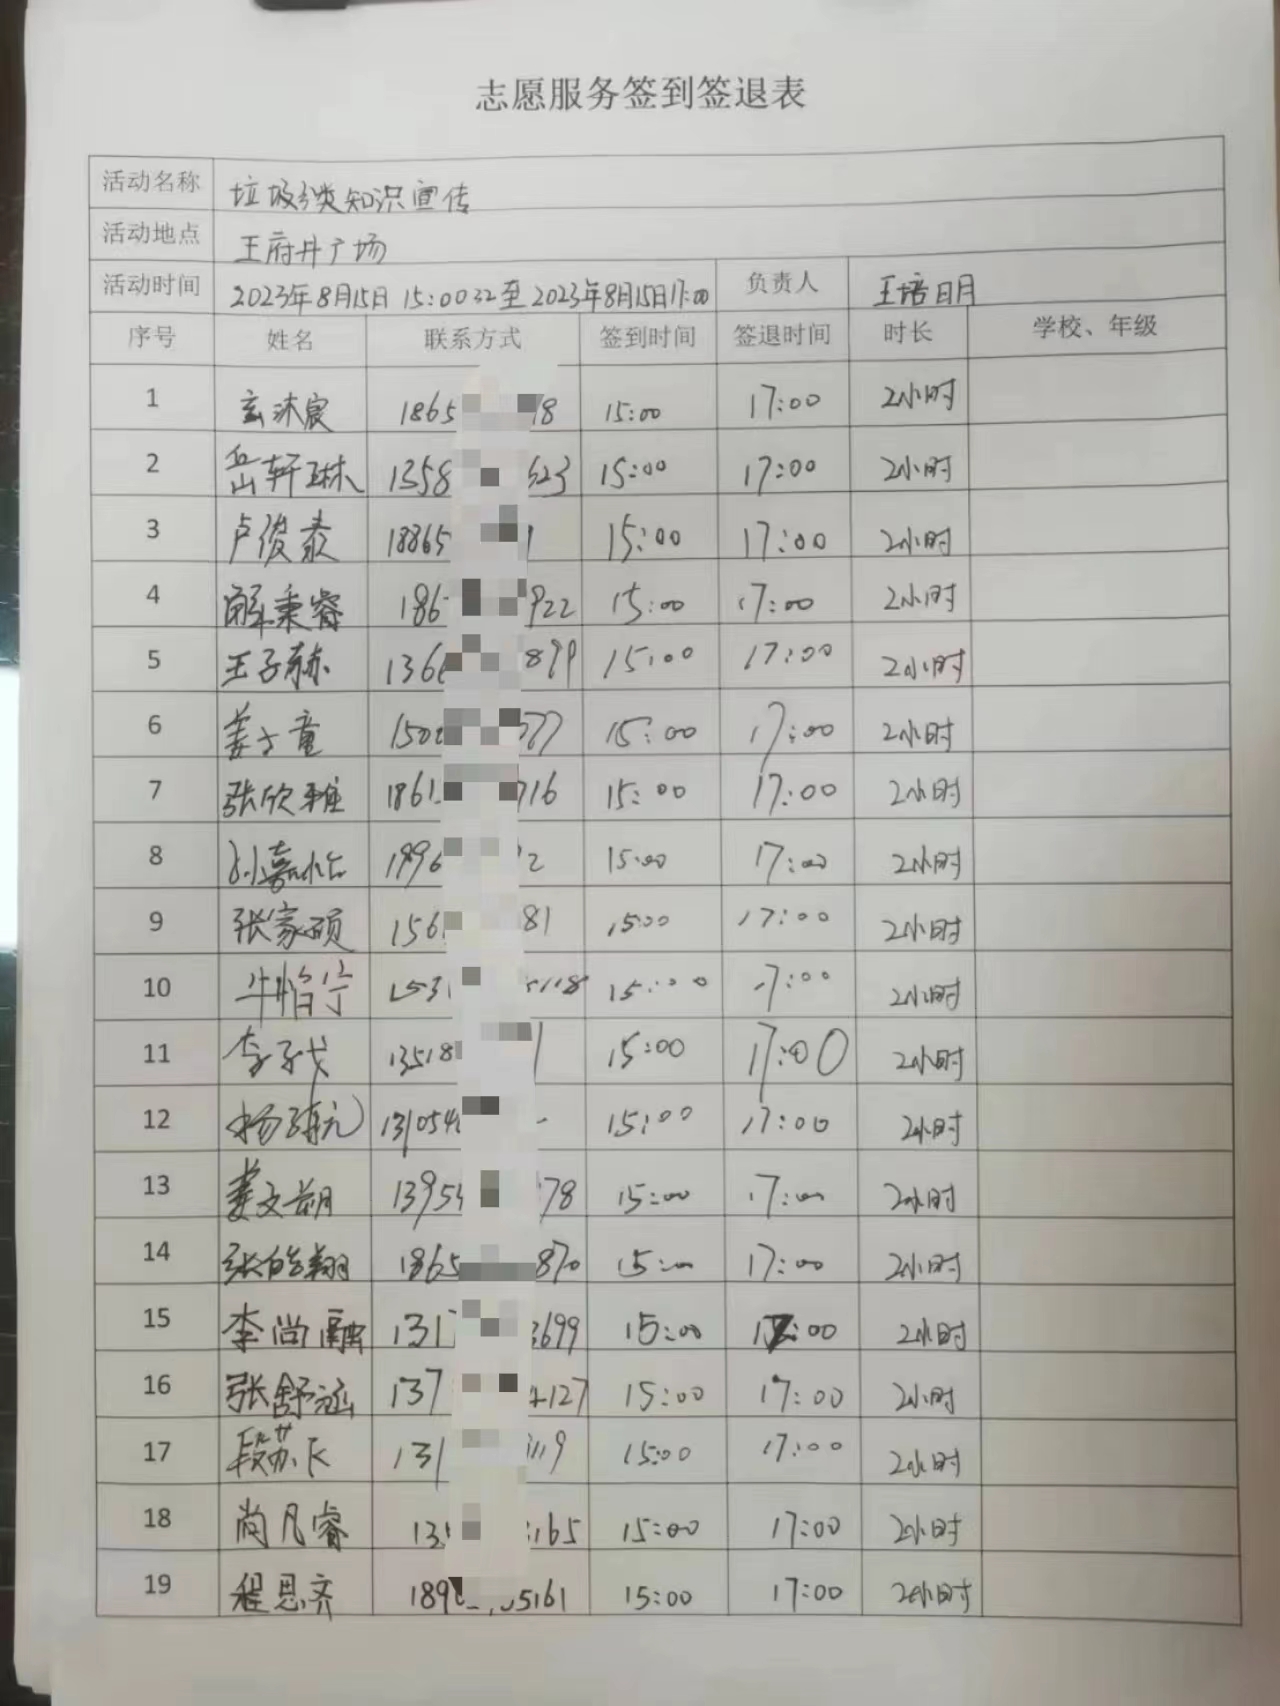 志愿服务签到签退表
活动名称 垃圾分类知识宣传
活动地点 王府井广场
活动时间 2023年8月15日 15:0032至2023年8月15日17:00 负责人 王培明
序号 姓名 联系方式 签到时间 签退时间 时长 学校、年级
1 玄沐宸 1865 78 15:00 17:00 2小时
2 岳轩琳 1358 523 15:00 17:00 2小时
3 卢俊泰 18865 1 15:00 17:00 2小时
4 解秉睿 186 922 15:00 17:00 2小时
5 王子赫 136 899 15:00 17:00 2小时
6 姜 童 150 577 15:00 17:00 2小时
7 张欣雅 1861 716 15:00 17:00 2小时
8 刘嘉怡 1996 2 15:00 17:00 2小时
9 张家硕 156 81 15:00 17:00 2小时
10 牛怡宁 1531 118 15:00 17:00 2小时
11 李子 13518 1 15:00 17:00 2小时
12 杨 131054 15:00 17:00 2小时
13 姜文 1395 78 15:00 17:00 2小时
14 张皓翔 1865 870 15:00 17:00 2小时
15 李尚融 131 3699 15:00 17:00 2小时
16 张舒涵 137 4127 15:00 17:00 2小时
17 段苏 131 119 15:00 17:00 2小时
18 尚凡睿 13 165 15:00 17:00 2小时
19 程思齐 189 5161 15:00 17:00 2小时